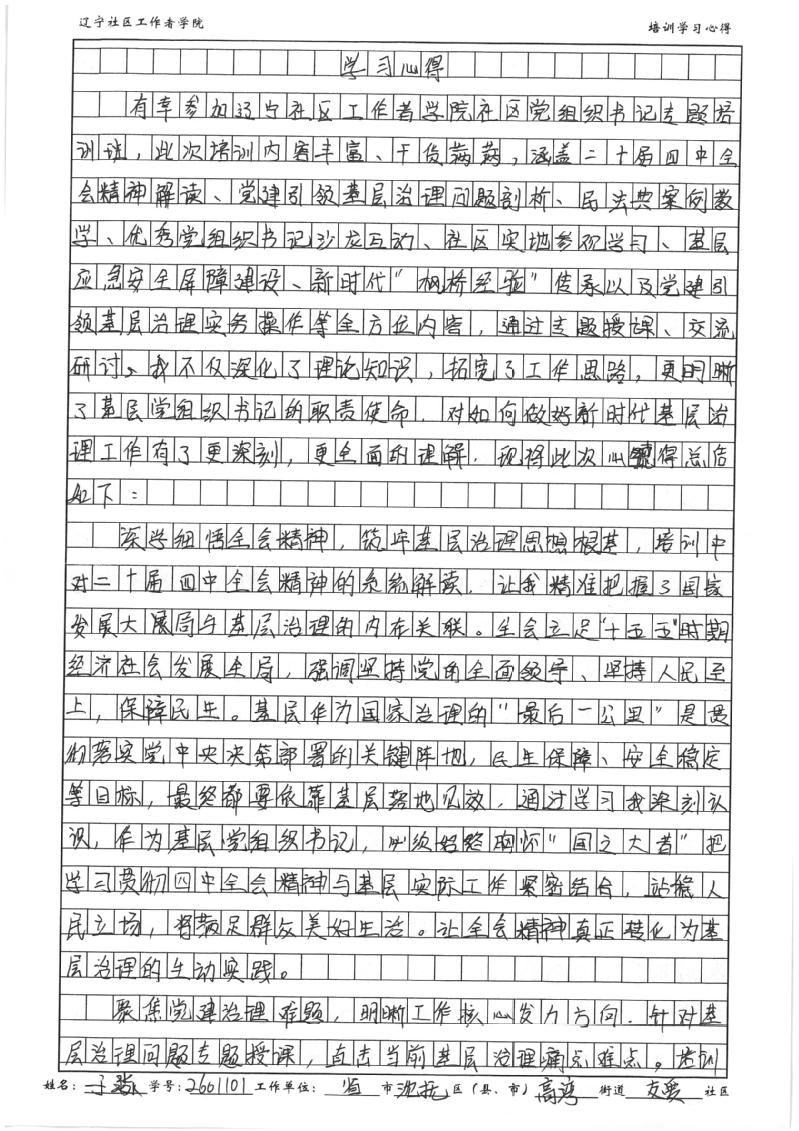 辽宁社区工作者学院 培训学习心得
学习心得
有幸参加辽宁社区工作者学院社区党组织书记专题培
训班,此次培训内容丰富、干货满满,涵盖二十届四中全
会精神解读、党建引领基层治理问题剖析、民法典案例教
学、优秀党组织书记沙龙互动、社区实地参观学习、基层
应急安全屏障建设、新时代“枫桥经验”传承以及党建引
领基层治理实务操作等全方位内容,通过专题授课、交流
研讨、我不仅深化了理论知识,拓宽了工作思路,更明晰
了基层党组织书记的职责使命.对如何做好新时代基层治
理工作有了更深刻,更全面的理解.现将此次心得总结
如下:
深学细悟全会精神,筑牢基层治理思想根基,培训中
对二十届四中全会精神的系统解读.让我精准把握了国家
发展大展局与基层治理的内在关联。全会立足“十五五”时期
经济社会发展全局,强调坚持党的全面领导、坚持人民至
上,保障民生。基层作为国家治理的“最后一公里”是贯
彻落实党中央决策部署的关键阵地,民生保障、安全稳定
等目标,最终都要依靠基层落地见效.通过学习我深刻认
识,作为基层党组织书记,必须始终胸怀“国之大者”把
学习贯彻四中全会精神与基层实际工作紧密结合,站稳人
民立场,将满足群众美好生活。让全会精神真正转化为基
层治理的生动实践。
聚焦党建治理难题,明晰工作核心发力方向.针对基
层治理问题专题授课,直击当前基层治理痛点难点。培训
姓名: 学号:2661101 工作单位: 省 市 沈抚 区(县、市) 高湾 街道 友爱 社区